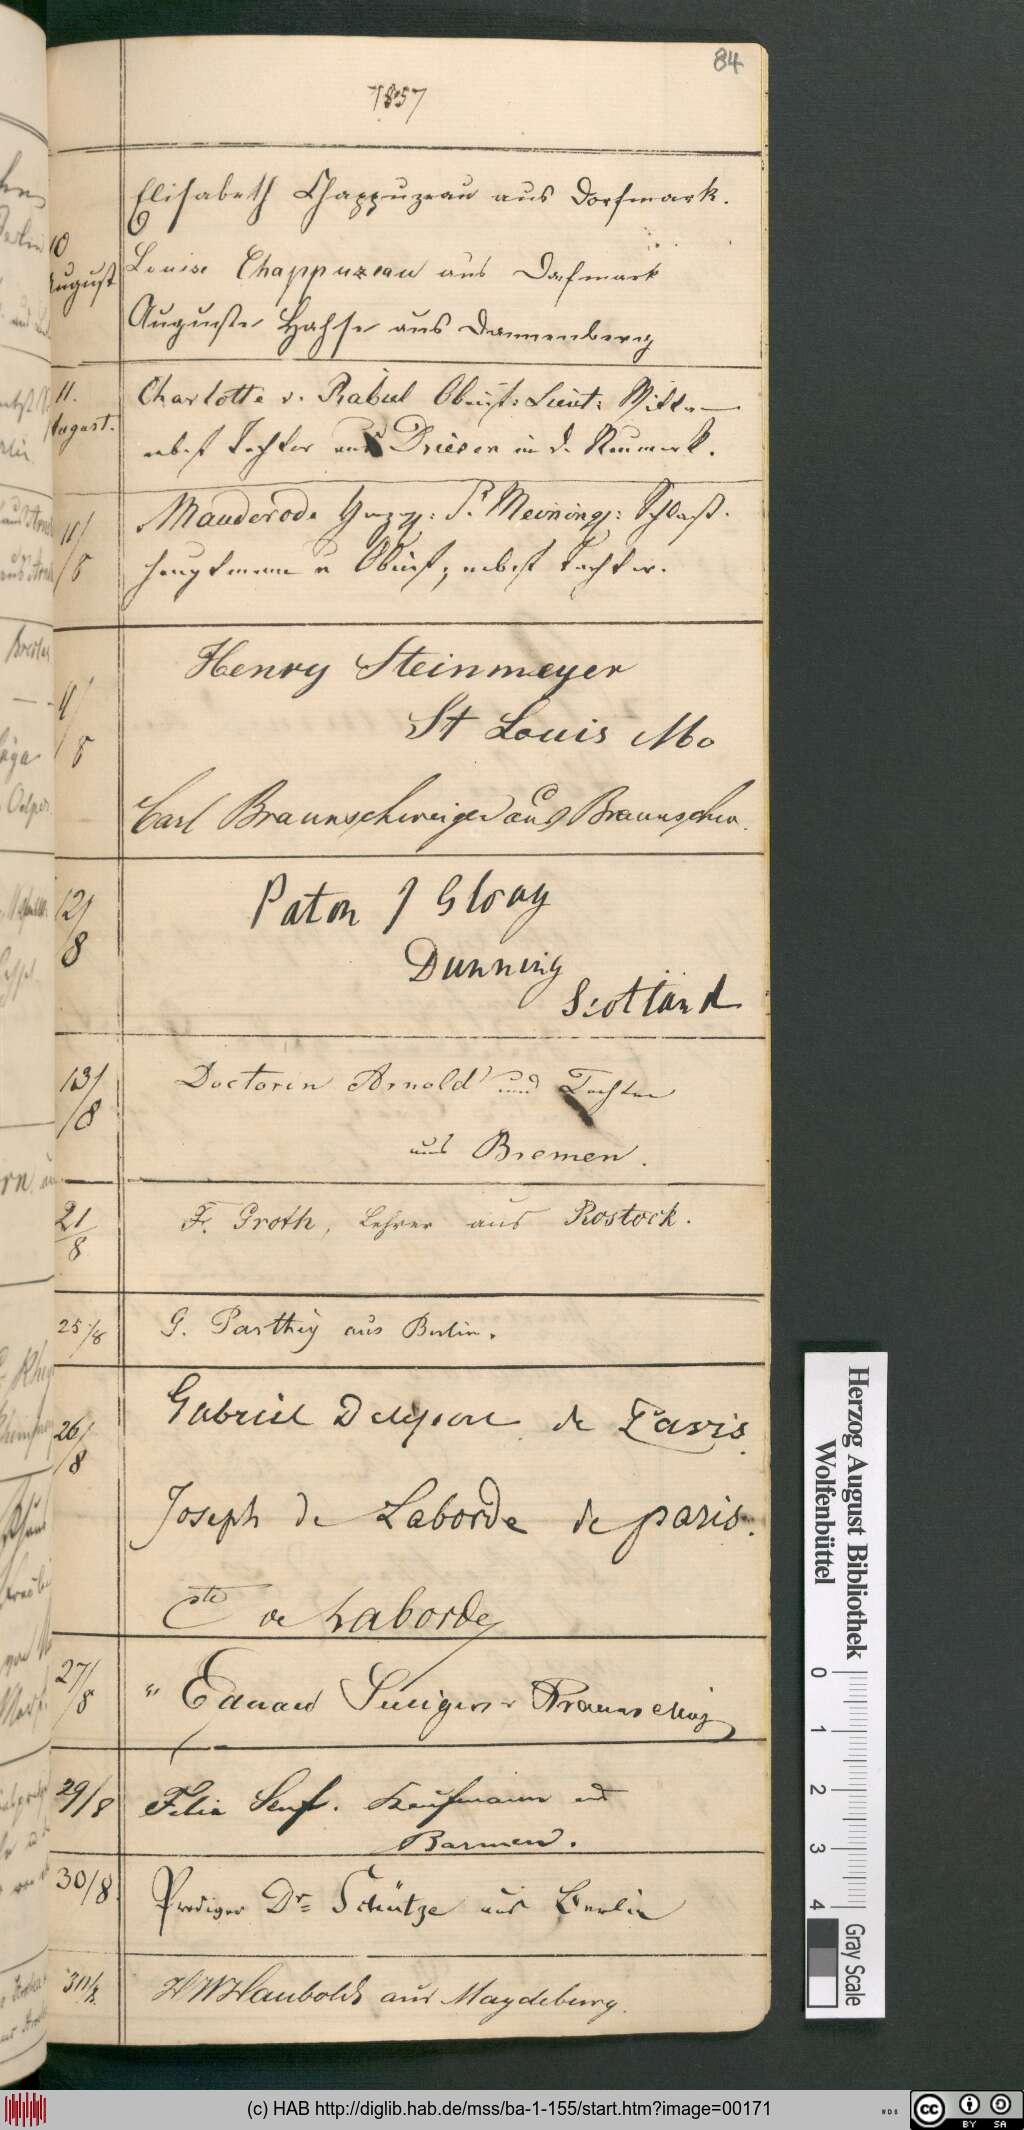 84
1857
10 August
Elisabeth Chappuzeau aus Dorfmark.
Louise Chappuzeau aus Dorfmark
Auguste Hahse aus Dannenberg
11. August.
Charlotte v. Rabiel Obrist: Lieut: Wittwe
nebst Tochter aus Driesen in d. Neumark.
11/8
Manderode Herzogl: S. Meiningl: Schloß-
hauptmann u Obrist, nebst Tochter.
11/8
Henry Steinmeyer
St Louis Mo
Carl Braunschweiger aus Braunschw.
12/8
Paton J Gloag
Dunning
Scotland
13/8
Doctorin Arnold und Tochter
aus Bremen.
21/8
F. Groth, Lehrer aus Rostock.
25/8
G. Parthey aus Berlin.
26/8
Gabriel de Paris.
Joseph de Laborde de paris.
Cte de Laborde
27/8
Eduard Braunschwg
29/8
Felix Senf. Kaufmann aus
Barmen.
30/8.
Prediger Dr Schütze aus Berlin
30/8.
H W Haubold aus Magdeburg.
Herzog August Bibliothek
Wolfenbüttel
0 1 2 3 4
Gray Scale
(c) HAB http://diglib.hab.de/mss/ba-1-155/start.htm?image=00171
WDB
cc BY SA